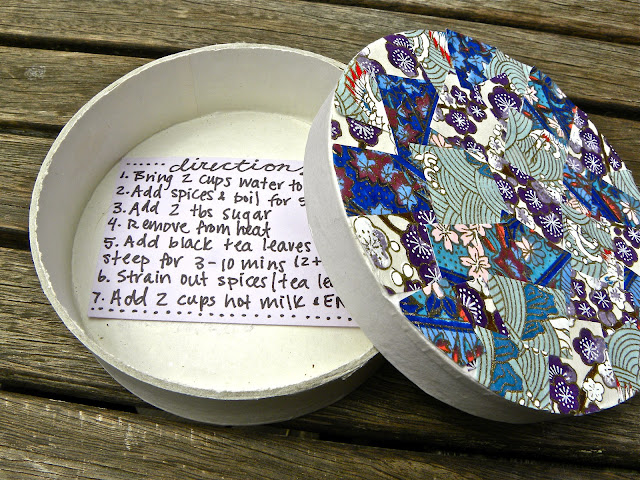 directions
1. Bring 2 cups water to
2. Add spices & boil for 5
3. Add 2 tbs sugar
4. Remove from heat
5. Add black tea leaves
steep for 3-10 mins (2+
6. Strain out spices/tea
7. Add 2 cups hot milk &